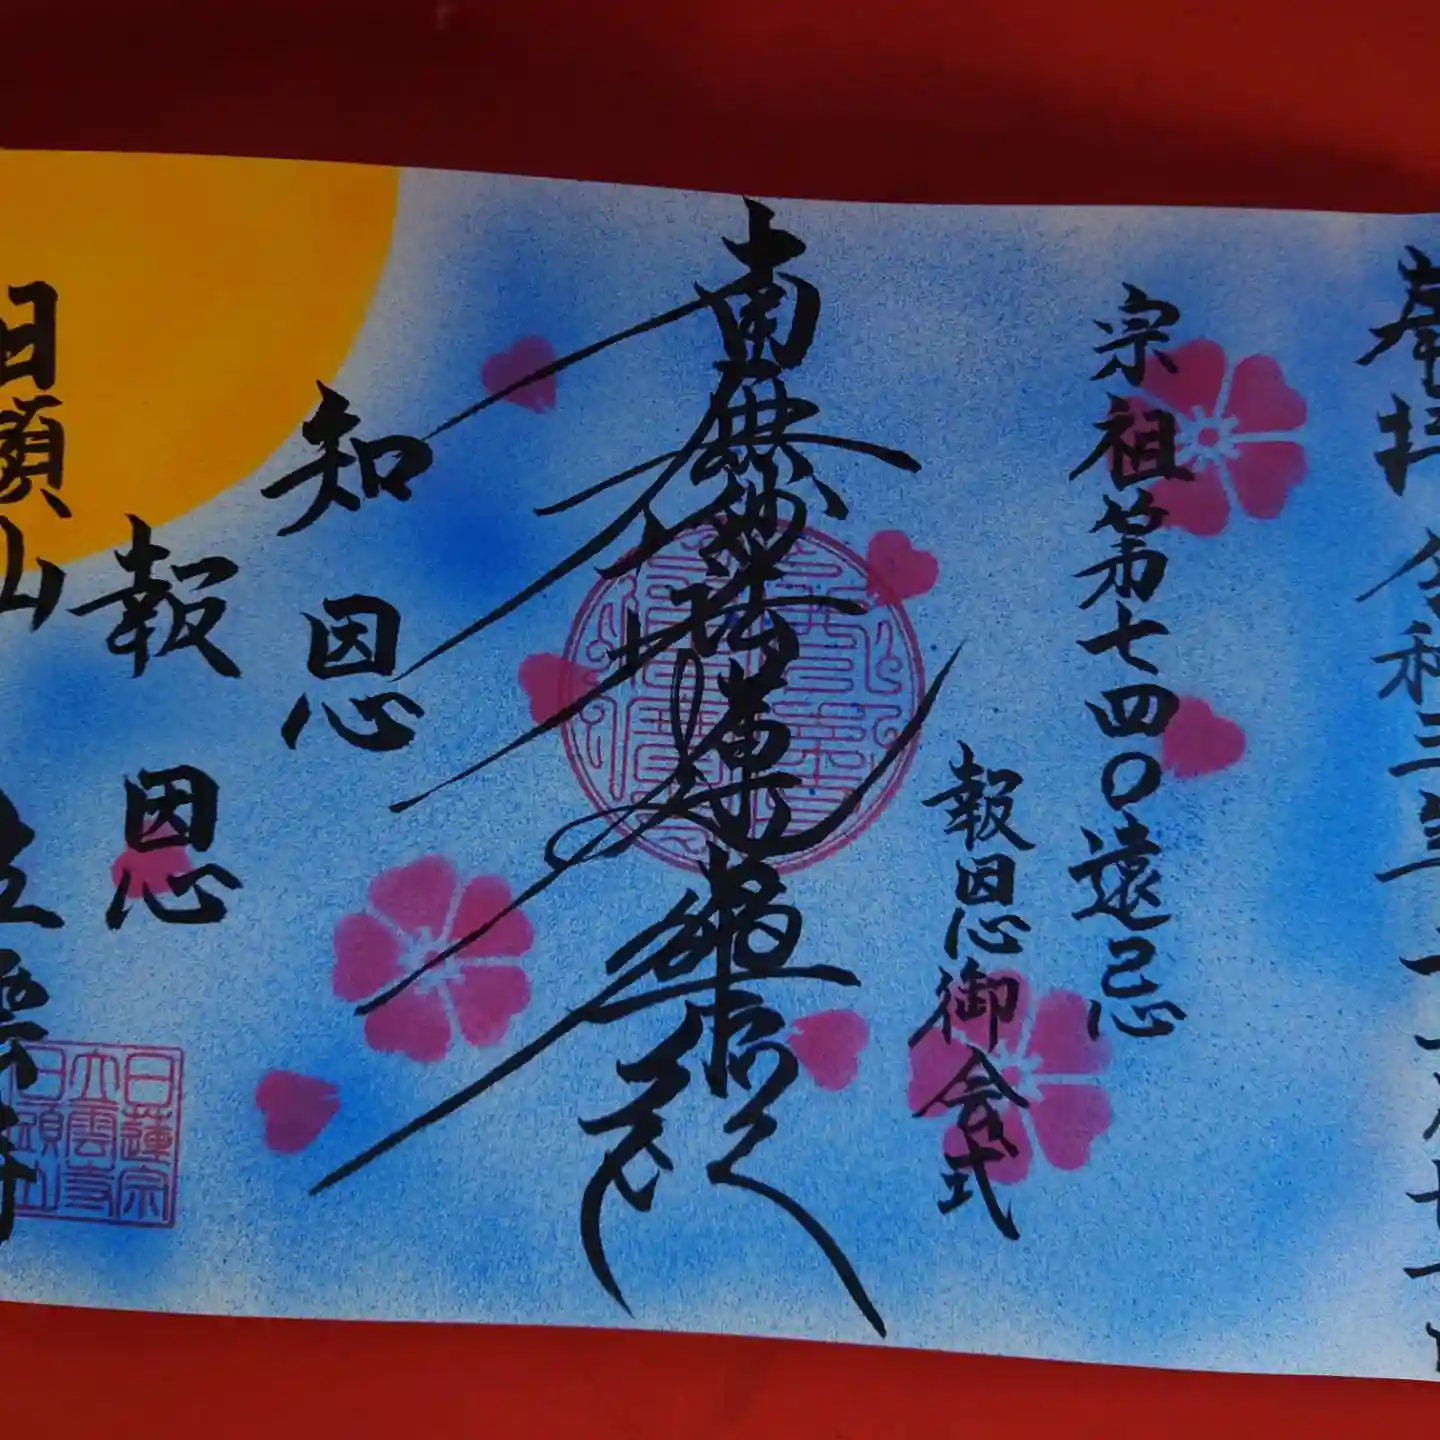 奉拝 令和三年十一月
宗祖第七四〇遠忌
報恩御会式
南無妙法蓮華経
知恩
報恩
日頭山 立雲寺
日蓮宗
立雲寺
日頭山